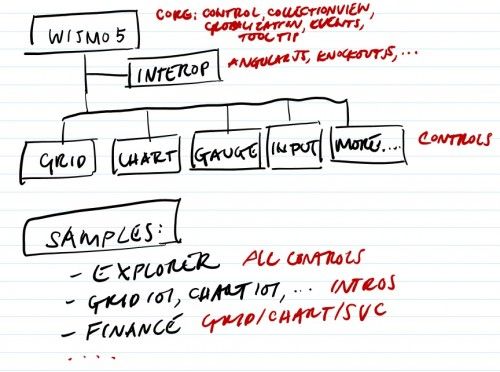 WIJMO 5
CORE: CONTROL, COLLECTIONVIEW,
GLOBALIZATION, EVENTS,
TOOLTIP
INTEROP
ANGULARJS, KNOCKOUTJS, ...
GRID CHART GAUGE INPUT MORE.... CONTROLS
SAMPLES:
- EXPLORER ALL CONTROLS
- GRID101, CHART101, ... INTROS
- FINANCE GRID/CHART/SVC
....